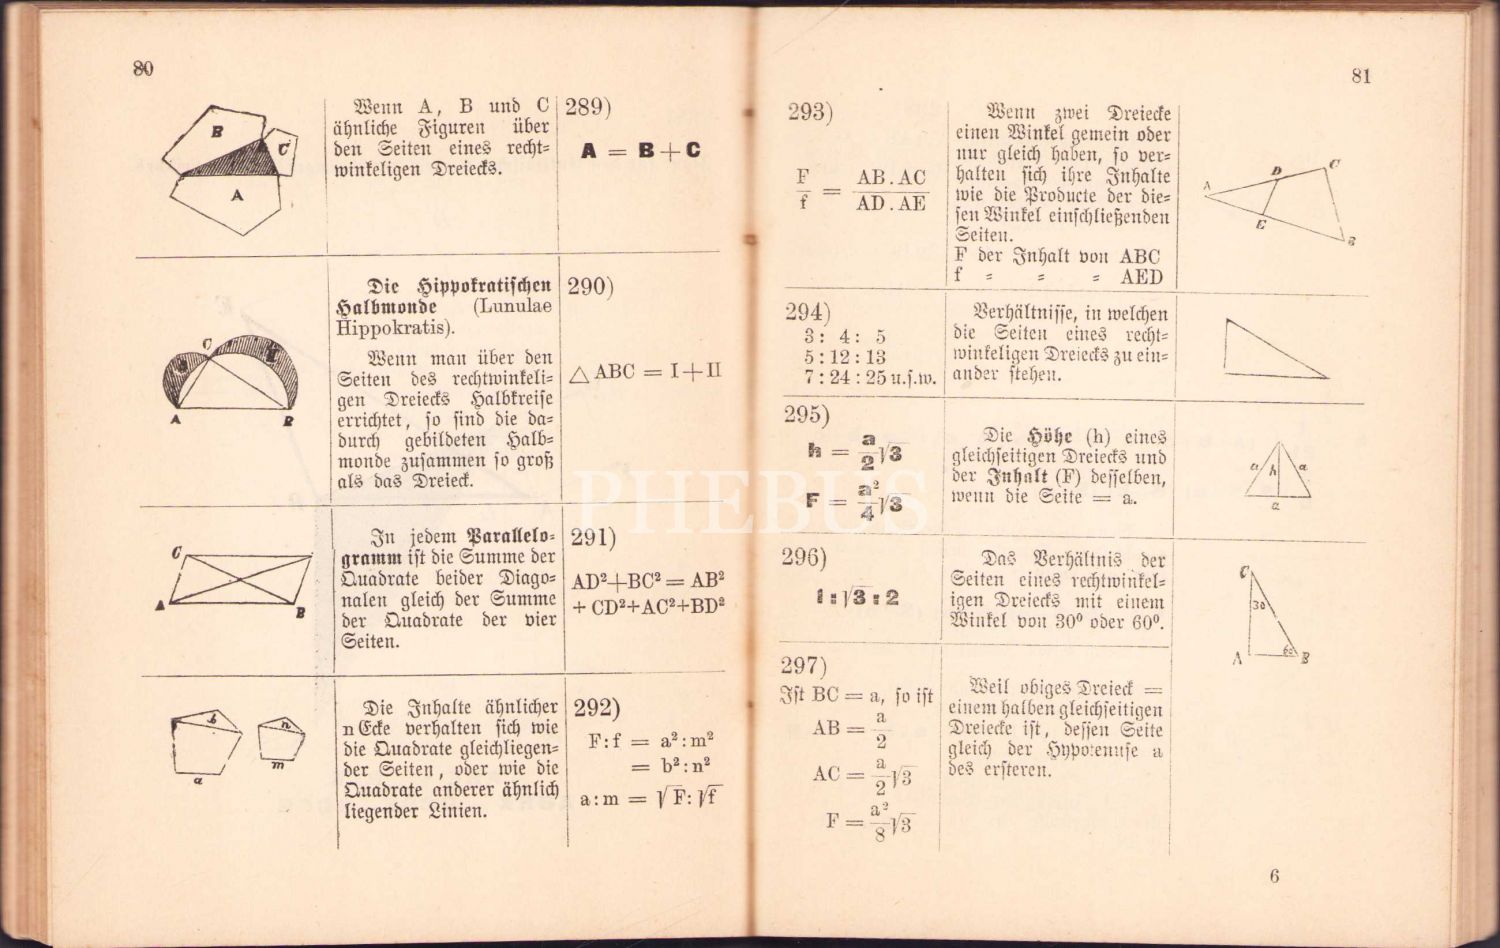 80
Wenn A, B und C
ähnliche Figuren über
den Seiten eines recht=
winkeligen Dreiecks.
289)
A = B + C
B
C
A
Die Hippokratischen
Halbmonde (Lunulae
Hippokratis).
Wenn man über den
Seiten des rechtwinkeli=
gen Dreiecks Halbkreise
errichtet, so sind die da=
durch gebildeten Halb=
monde zusammen so groß
als das Dreieck.
290)
△ ABC = I + II
C
A
B
In jedem Parallelo=
gramm ist die Summe der
Quadrate beider Diago=
nalen gleich der Summe
der Quadrate der vier
Seiten.
291)
AD²+BC² = AB²
+ CD²+AC²+BD²
C
A
B
Die Inhalte ähnlicher
n Ecke verhalten sich wie
die Quadrate gleichliegen=
der Seiten, oder wie die
Quadrate anderer ähnlich
liegender Linien.
292)
F:f = a²:m²
= b²:n²
a:m = √F:√f
b
a
n
m
81
293)
F/f = AB.AC/AD.AE
Wenn zwei Dreiecke
einen Winkel gemein oder
nur gleich haben, so ver=
halten sich ihre Inhalte
wie die Producte der die=
sen Winkel einschließenden
Seiten.
F der Inhalt von ABC
f = = = AED
A
D
C
E
B
294)
3: 4: 5
5:12:13
7:24:25 u.s.w.
Verhältnisse, in welchen
die Seiten eines recht=
winkeligen Dreiecks zu ein=
ander stehen.
295)
h = a/2 √3
F = a²/4 √3
Die Höhe (h) eines
gleichseitigen Dreiecks und
der Inhalt (F) desselben,
wenn die Seite = a.
a h a
a
296)
1:√3:2
Das Verhältnis der
Seiten eines rechtwinkel=
igen Dreiecks mit einem
Winkel von 30⁰ oder 60⁰.
C
30
A
60
B
297)
Ist BC = a, so ist
AB = a/2
AC = a/2 √3
F = a²/8 √3
Weil obiges Dreieck =
einem halben gleichseitigen
Dreiecke ist, dessen Seite
gleich der Hypotenuse a
des ersteren.
6
PHEBUS